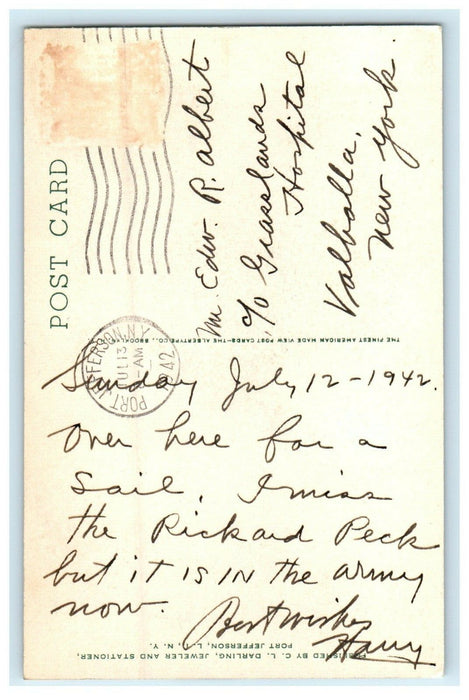 POST CARD
PORT JEFFERSON, N.Y.
JUL 13
AM
1942
Mr. Edw. R. Albert
c/o Grasslands
Hospital
Valhalla,
New York.
THE FINEST AMERICAN MADE VIEW POST CARDS—THE ALBERTYPE CO., BROOKLYN,
Sunday July 12-1942.
Over here for a
sail. I miss
the Rickard Peck
but it is in the army
now.
Best wishes
Harry
PUBLISHED BY C. L. DARLING, JEWELER AND STATIONER,
PORT JEFFERSON, L. I., N. Y.